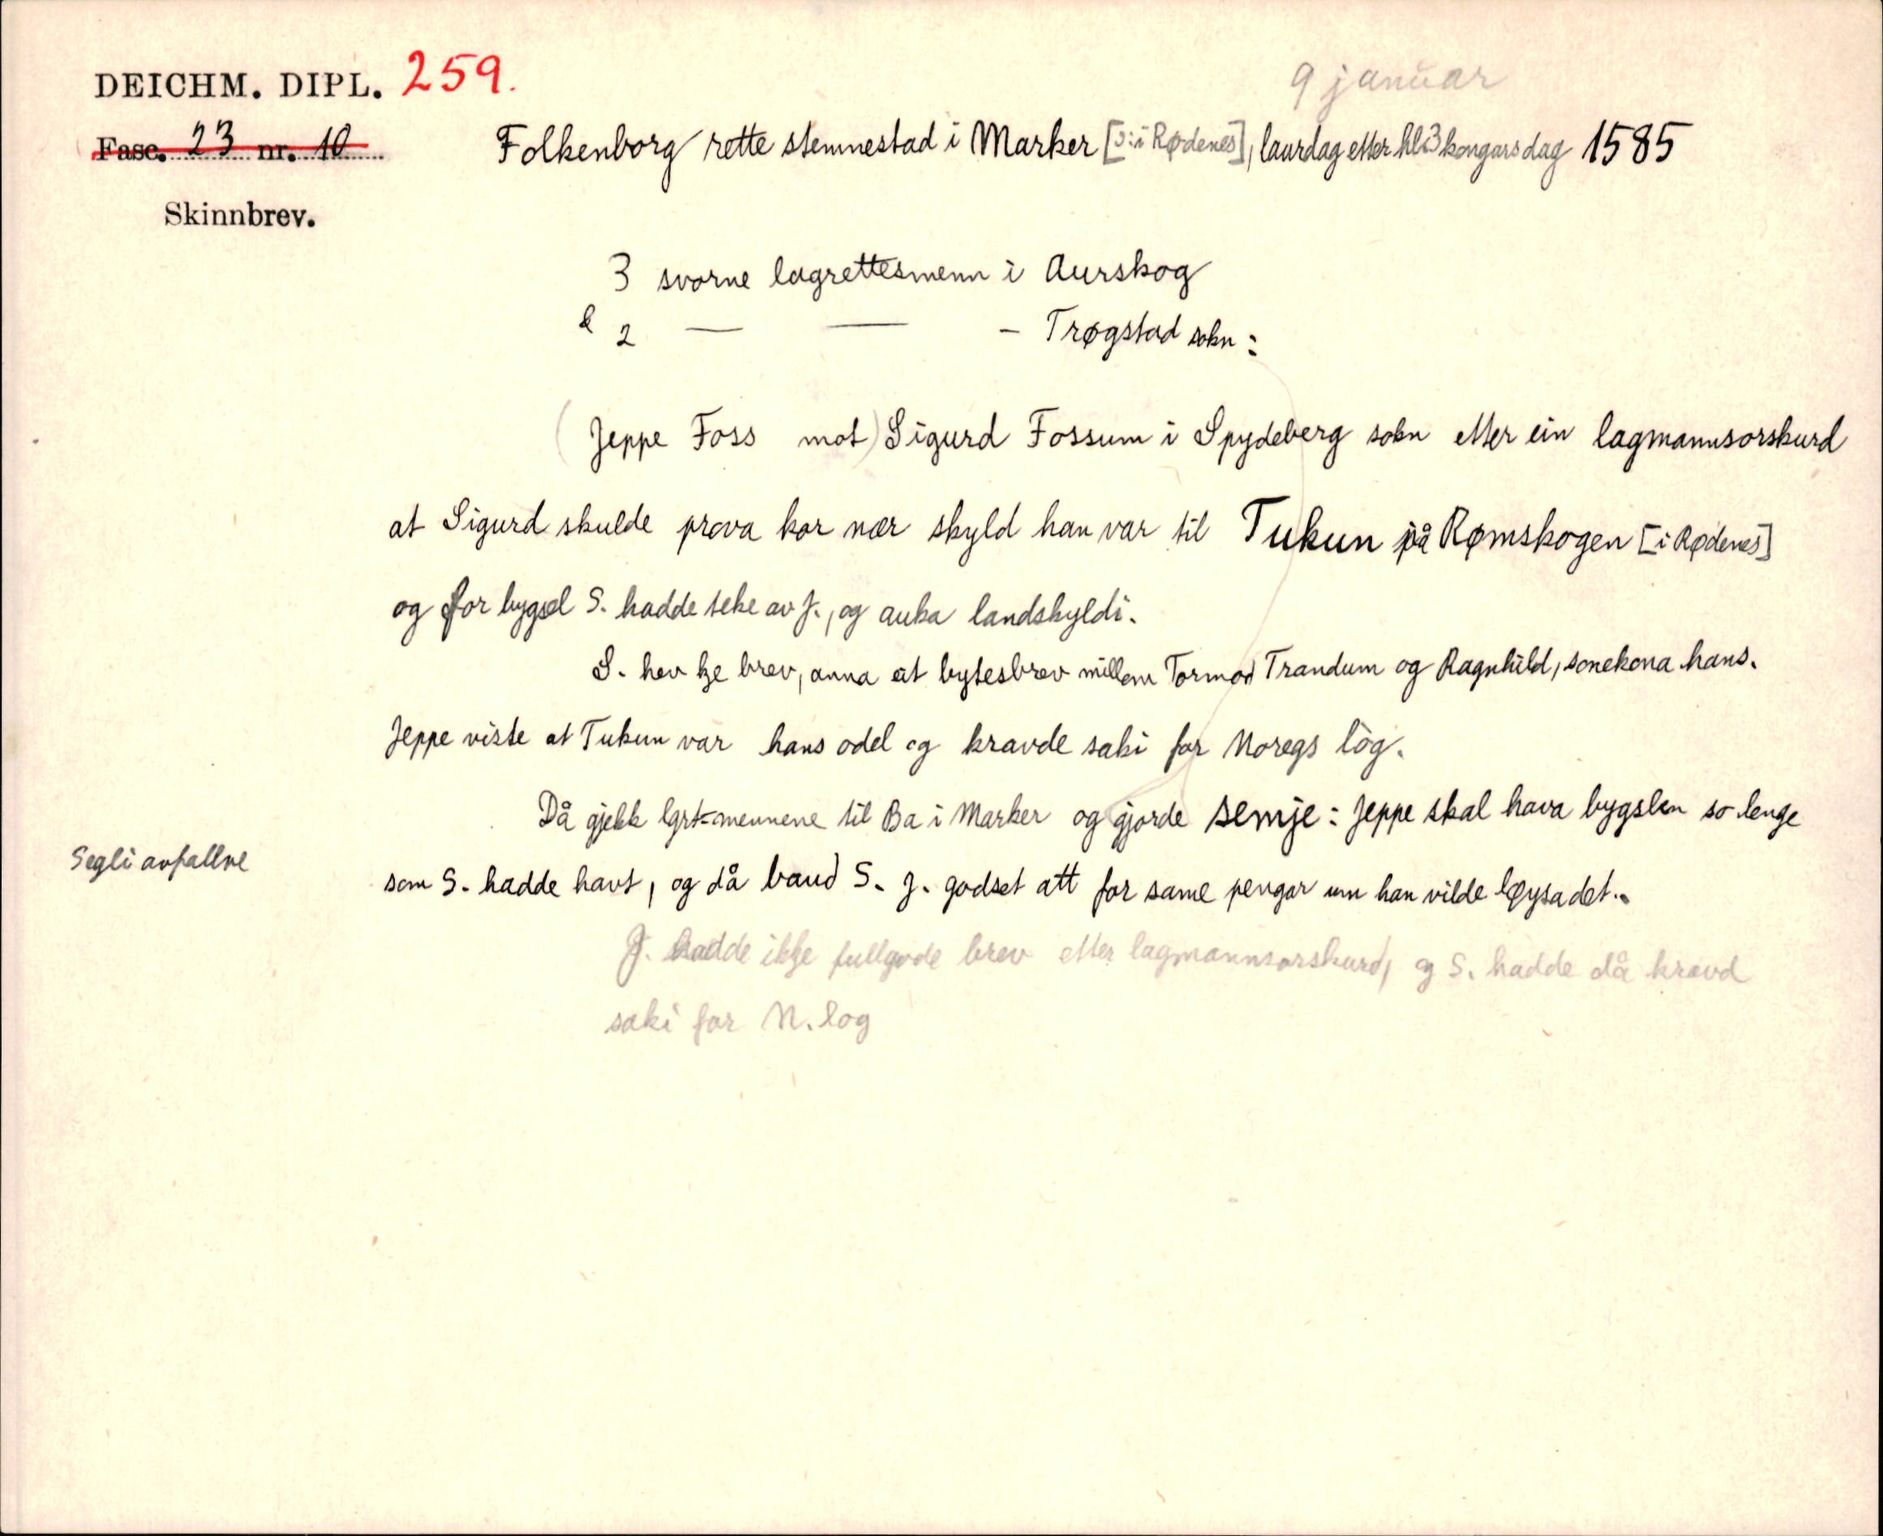 DEICHM. DIPL. 259.
9 januar
Fasc. 23 nr. 10
Folkenborg rette stemnestad i Marker [ɔ: i Rødenes], laurdag etter hl. 3 kongars dag 1585
Skinnbrev.
3 svorne lagrettesmenn i Aurskog
& 2 — — - Trøgstad sokn:
(Jeppe Foss mot) Sigurd Fossum i Spydeberg sokn etter ein lagmannsorskurd
at Sigurd skulde prova kor nær skyld han var til Tukun på Rømskogen [i Rødenes]
og for bygsel S. hadde teke av J., og auka landskyldi.
S. hev kje brev, anna at bytesbrev millom Tormod Trandum og Ragnhild, sonekona hans.
Jeppe viste at Tukun var hans odel og kravde saki for Noregs log.
Då gjekk lgrt-mennene til Ba i Marker og gjorde semje: Jeppe skal hava bygslen so lenge
Segli avfallne
som S. hadde havt, og då baud S. J. godset att for same pengar um han vilde løysa det.
J. hadde ikkje fullgode brev etter lagmannsorskurd, og S. hadde då kravd
saki for N. log